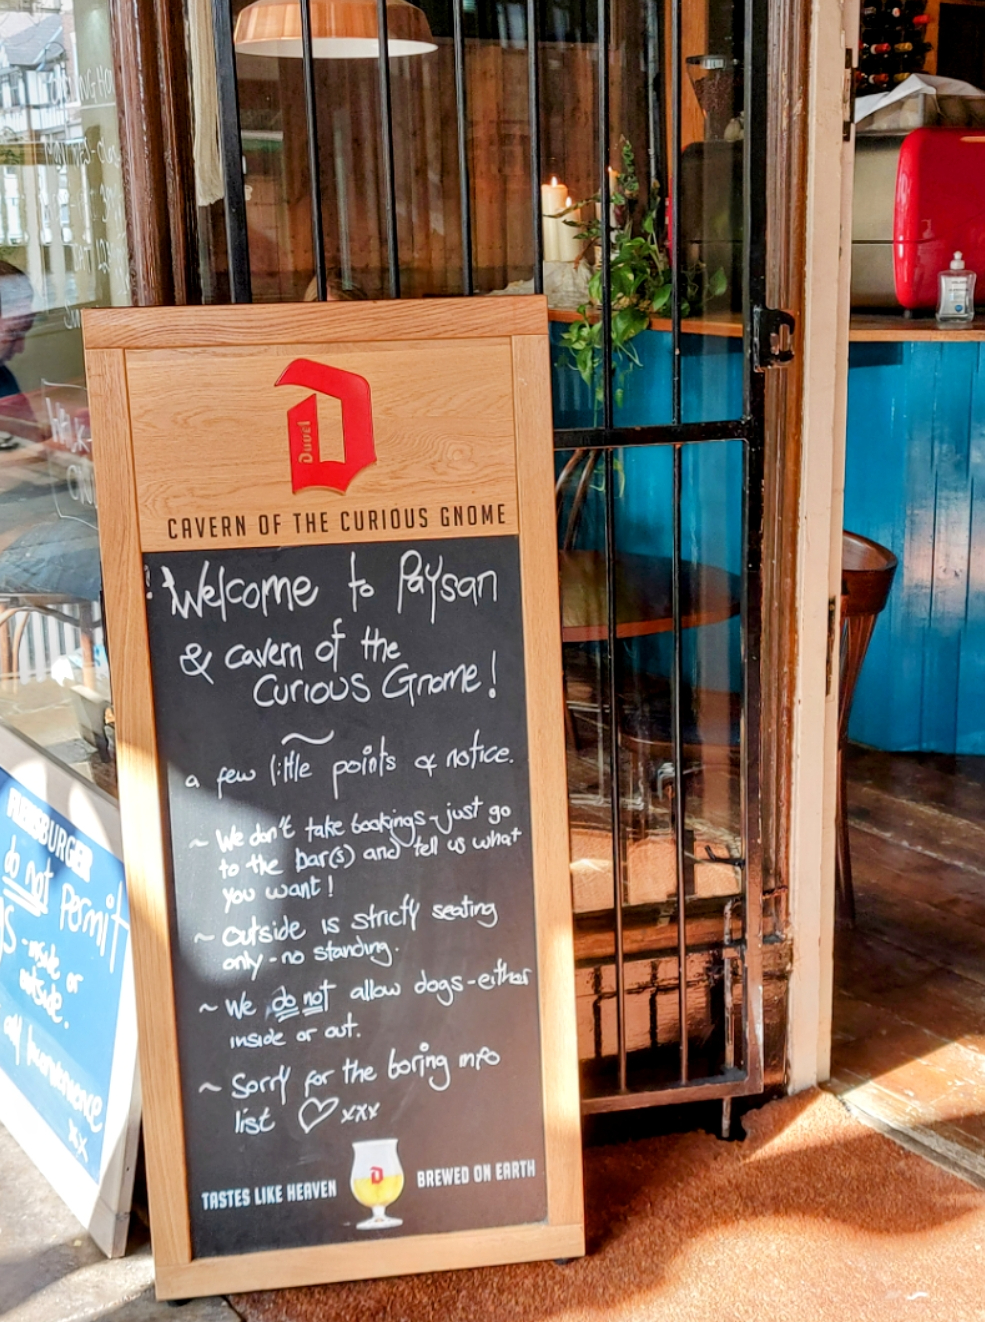 Duvel
CAVERN OF THE CURIOUS GNOME
! Welcome to Paysan
& cavern of the
Curious Gnome!
~
a few little points of notice.
~ We don't take bookings - just go
to the bar(s) and tell us what
you want!
~ Outside is strictly seating
only - no standing.
~ We do not allow dogs - either
inside or out.
~ Sorry for the boring info
list ♡ xxx
TASTES LIKE HEAVEN
D
BREWED ON EARTH
FLENSBURGER
do not permit
- inside or
outside.
any inconvenience
xx